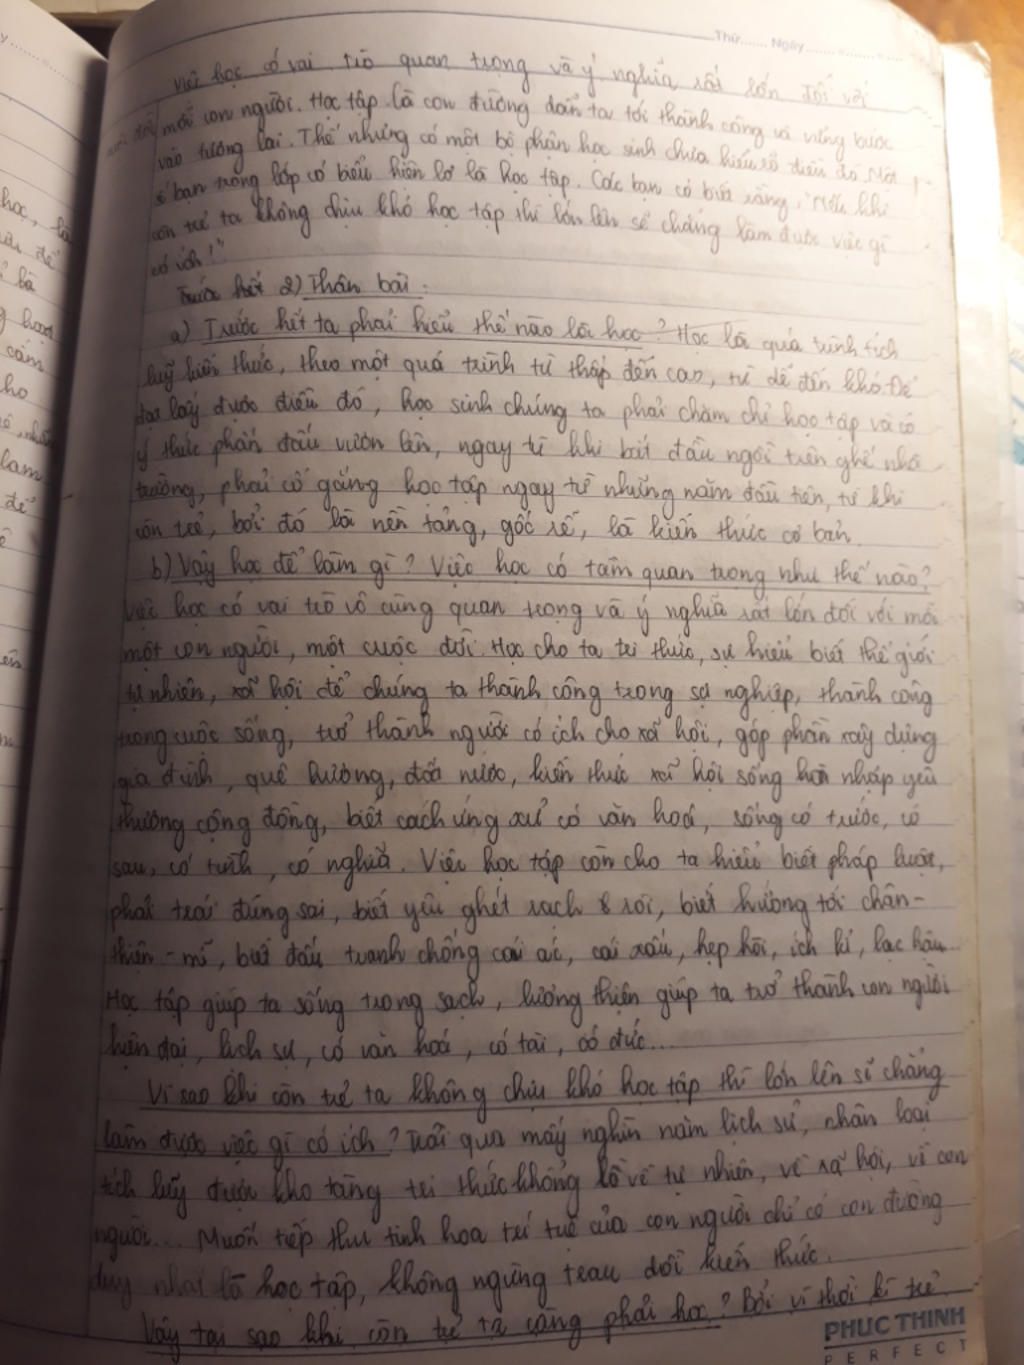 Thứ...... Ngày...............
Việc học có vai trò quan trọng và ý nghĩa rất lớn đối với
mỗi con người. Học tập là con đường dẫn ta tới thành công và vững bước
vào tương lai. Thế nhưng có một bộ phận học sinh chưa hiểu rõ điều đó. Một
số bạn trong lớp có biểu hiện lơ là học tập. Các bạn có biết rằng, "Nếu khi
còn trẻ ta không chịu khó học tập thì lớn lên sẽ chẳng làm được việc gì
có ích!"
Trước hết 2) Thân bài.
a) Trước hết ta phải hiểu thế nào là học? Học là quá trình tích
luỹ kiến thức, theo một quá trình từ thấp đến cao, từ dễ đến khó. Để
được điều đó, học sinh chúng ta phải chăm chỉ học tập và có
ý thức phấn đấu vươn lên, ngay từ khi bắt đầu ngồi trên ghế nhà
trường, phải cố gắng học tập ngay từ những năm đầu tiên, từ khi
còn trẻ, bởi đó là nền tảng, gốc rễ, là kiến thức cơ bản.
b) Vậy học để làm gì? Việc học có tầm quan trọng như thế nào?
Việc học có vai trò vô cùng quan trọng và ý nghĩa rất lớn đối với mỗi
một con người, một cuộc đời. Học cho ta tri thức, sự hiểu biết thế giới
tự nhiên, xã hội để chúng ta thành công trong sự nghiệp, thành công
trong cuộc sống, trở thành người có ích cho xã hội, góp phần xây dựng
gia đình, quê hương, đất nước, kiến thức xã hội sống hoà nhập yêu
thương cộng đồng, biết cách ứng xử có văn hoá, sống có trước, có
sau, có tình, có nghĩa. Việc học tập còn cho ta hiểu biết pháp luật,
phải trái đúng sai, biết yêu ghét rạch ròi, biết hướng tới chân-
thiện-mĩ, biết đấu tranh chống cái ác, cái xấu, hẹp hòi, ích kỉ, lạc hậu...
Học tập giúp ta sống trong sạch, lương thiện giúp ta trở thành con người
hiện đại, lịch sự, có văn hoá, có tài, có đức...
Vì sao khi còn trẻ ta không chịu khó học tập thì lớn lên sẽ chẳng
làm được việc gì có ích? Trải qua mấy nghìn năm lịch sử, nhân loại
tích luỹ được kho tàng tri thức khổng lồ về tự nhiên, về xã hội, về con
người... Muốn tiếp thu tinh hoa trí tuệ của con người chỉ có con đường
duy nhất là học tập, không ngừng trau dồi kiến thức.
Vậy tại sao khi còn trẻ ta càng phải học? Bởi vì thời kì trẻ
PHUC THINH
PERFECT